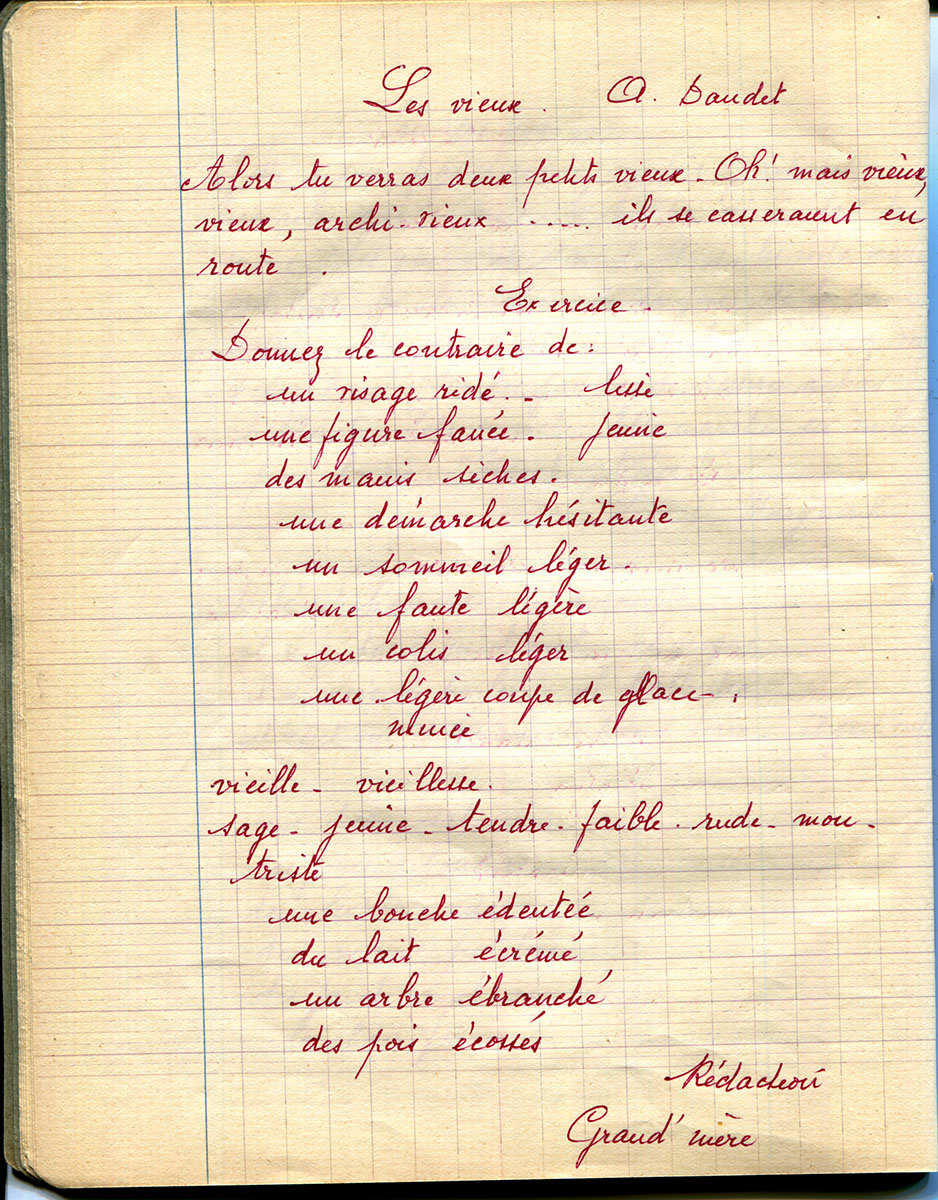 Les vieux. A. Daudet
Alors tu verras deux petits vieux - Oh! mais vieux,
vieux, archi-vieux ..... ils se casseraient en
route.
Exercice.
Donnez le contraire de:
un visage ridé. - lisse
une figure fanée. jeune
des mains sèches.
une démarche hésitante
un sommeil léger.
une faute légère
un colis léger
une légère coupe de glace.
mince
vieille - vieillesse.
sage - jeune - tendre - faible - rude - mou -
triste
une bouche édentée
du lait écrémé
un arbre ébranché
des pois écossés
Rédaction
Grand'mère